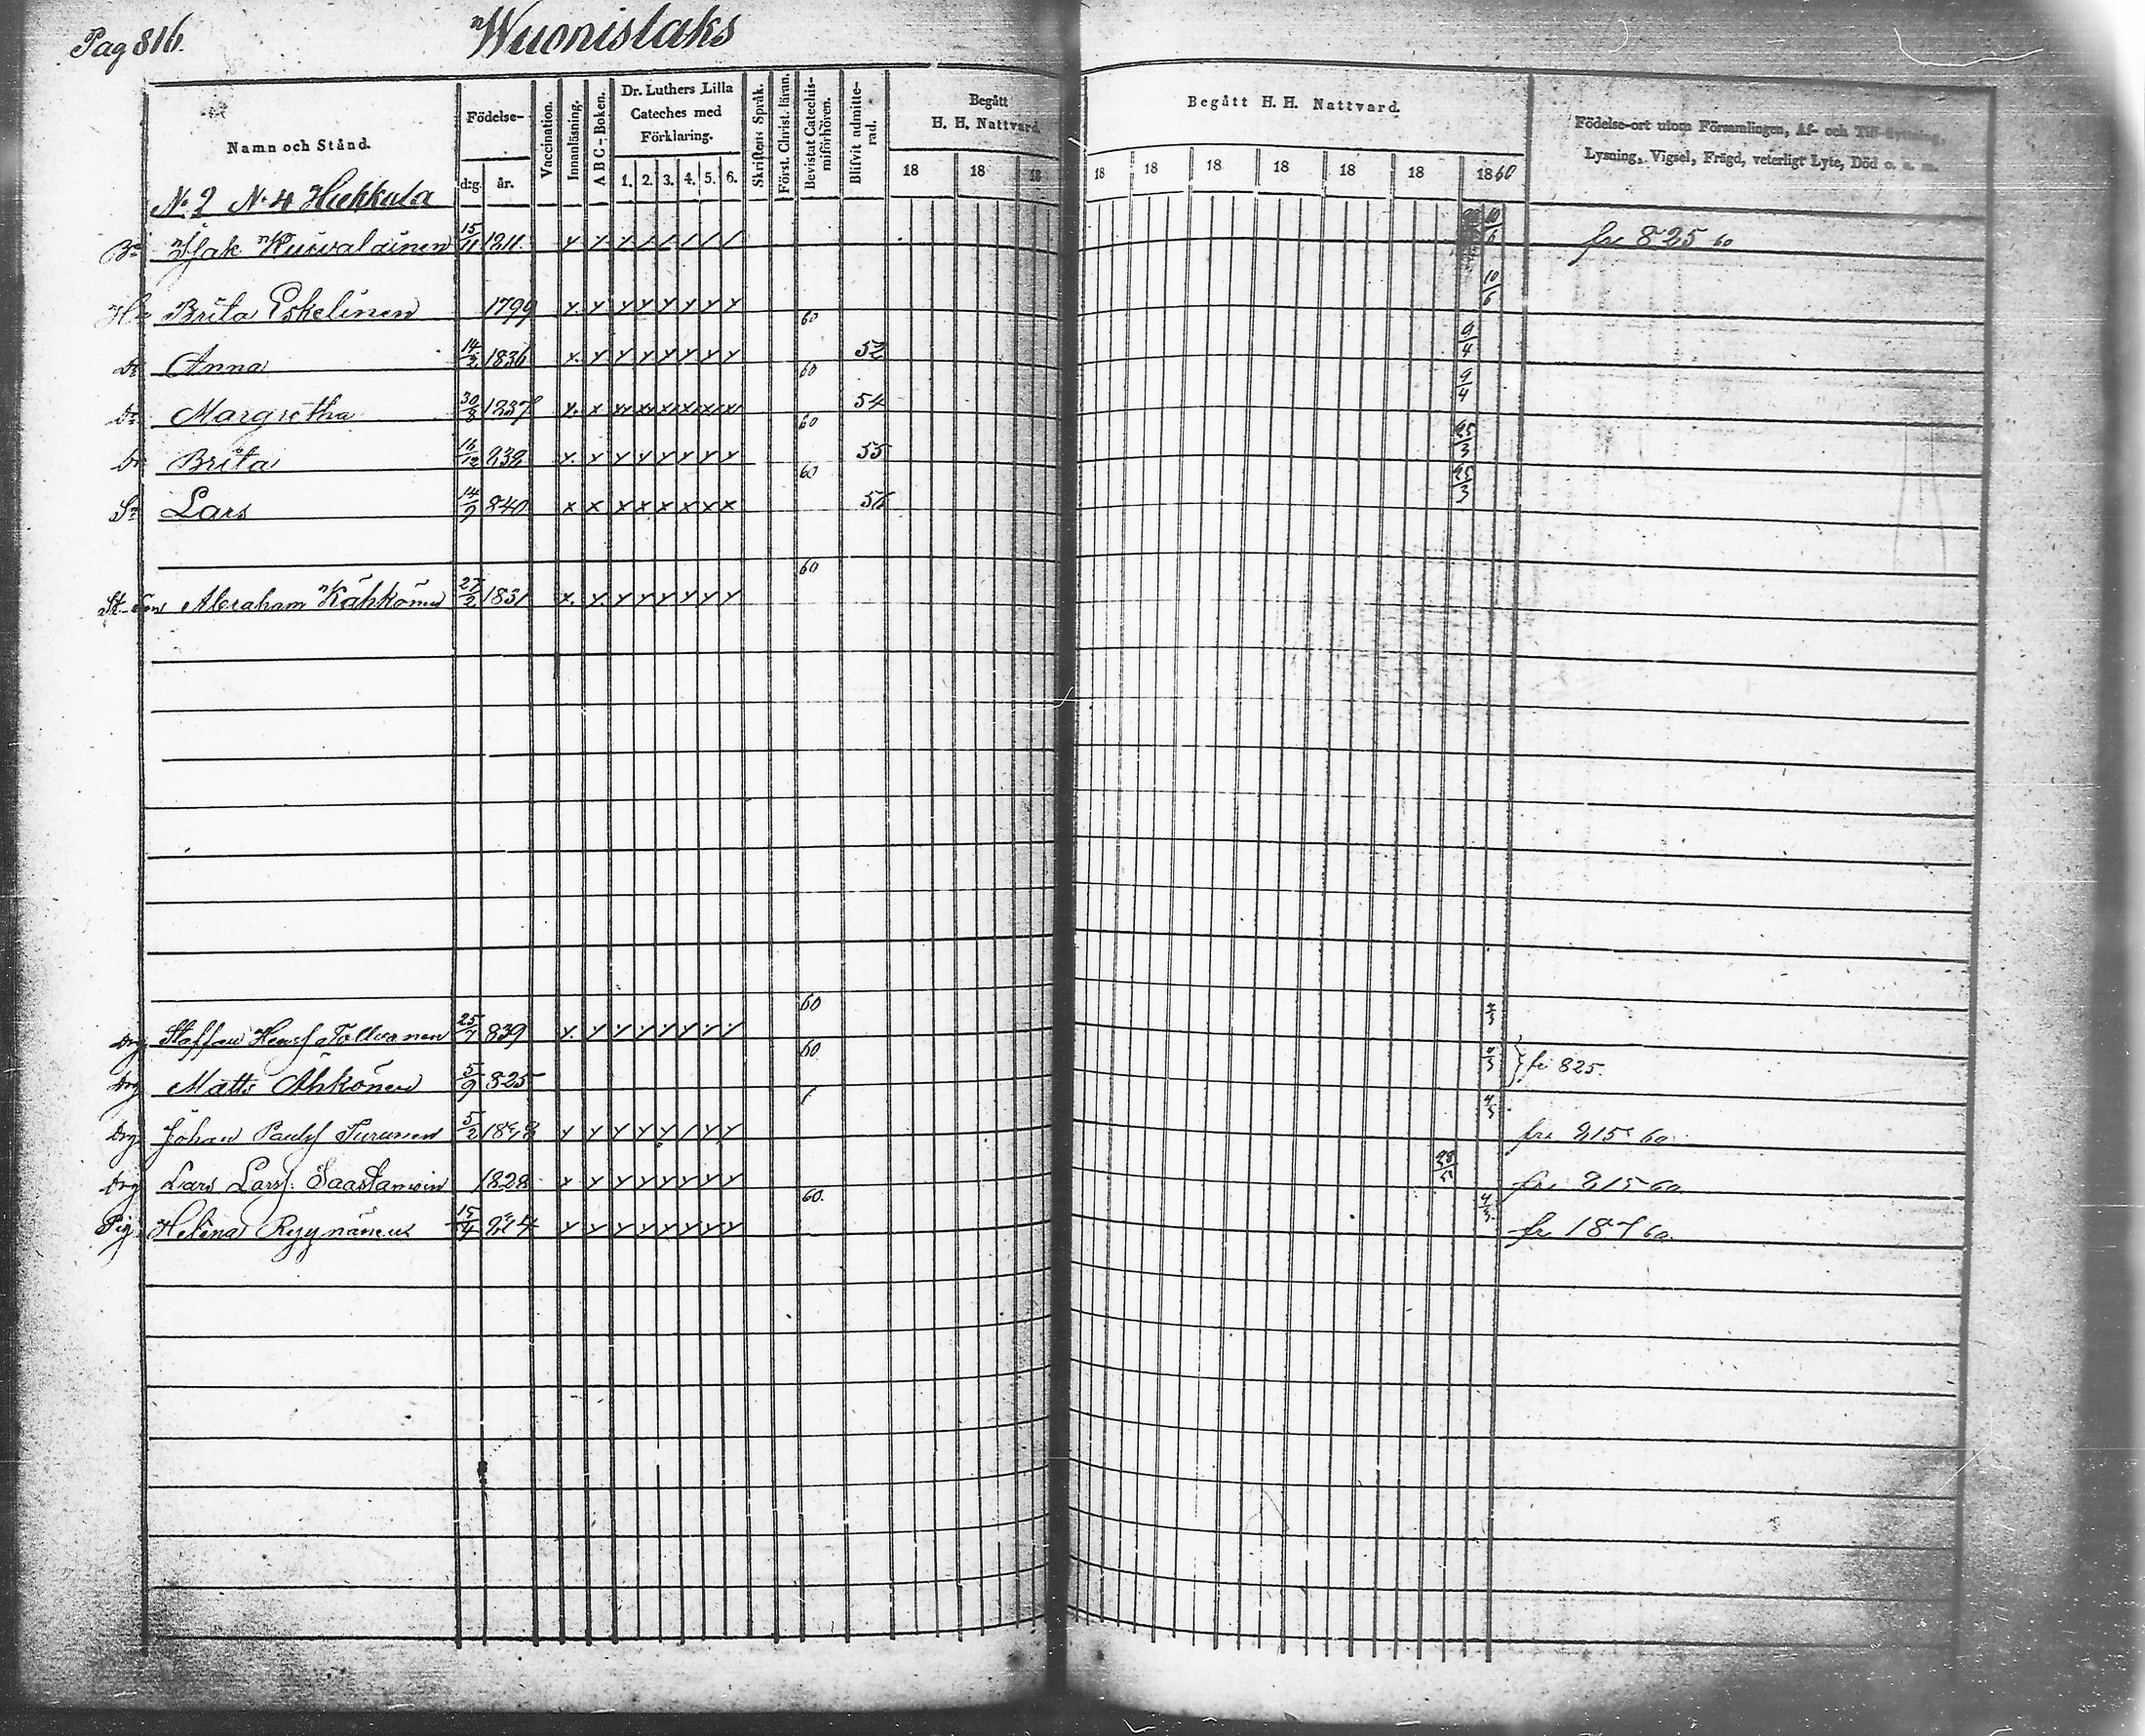 Pag 816.
Wuonislaks
Namn och Stånd.
Födelse-
d:g.
år.
Vaccination.
Innanläsning.
A B C-Boken.
Dr. Luthers Lilla
Cateches med
Förklaring.
1. 2. 3. 4. 5. 6.
Skriftens Språk.
Först. Christ. läran.
Bevistat Catechis-
miförhören.
Blifvit admitte-
rad.
Begått
H. H. Nattvard.
18 18 18
Begått H. H. Nattvard.
18 18 18 18 18 18 1860
Födelse-ort utom Församlingen, Af- och Till-flyttning,
Lysning, Vigsel, Frägd, veterligt Lyte, Död o. s. m.
N. 2 N. 4 Hukkala
15/11 1811. x x x / / / / / 10/6 fr 825 60
Brita Eskelinen 1799 x. x x x x x x x 10/6
60
Dr Anna 14/2 1836 x. x x x x x x x 52 9/4
60
Dr Margretha 30/8 1837 x. x x x x x x x 54 9/4
60
Dr Brita 16/12 838 x. x x x x x x x 55 25/3
60
Sn Lars 14/9 840 x x x x x x x x 25/3
60
Abraham Kähkönen 27/2 1831 x. x. x x x x x x
60
Drg Staffan Tolwanen 25/7 839 x. x x x x x x x 4/3
60
Drg Matts Ahkönen 5/9 825 4/3 fr 825.
Drg Johan Paulss Turunen 5/2 x x x x x / x x 4/3 fr 815 60.
Drg Lars Larss. Saastamoin 1828 x x x x x x x x fr. 815 60.
60.
Pig Helena Ryynänen 15/4 x x x x x x x x 4/3. fr 187 60.